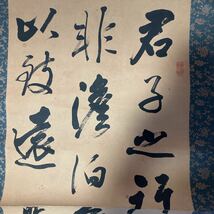 君子之
非澹泊
以致遠